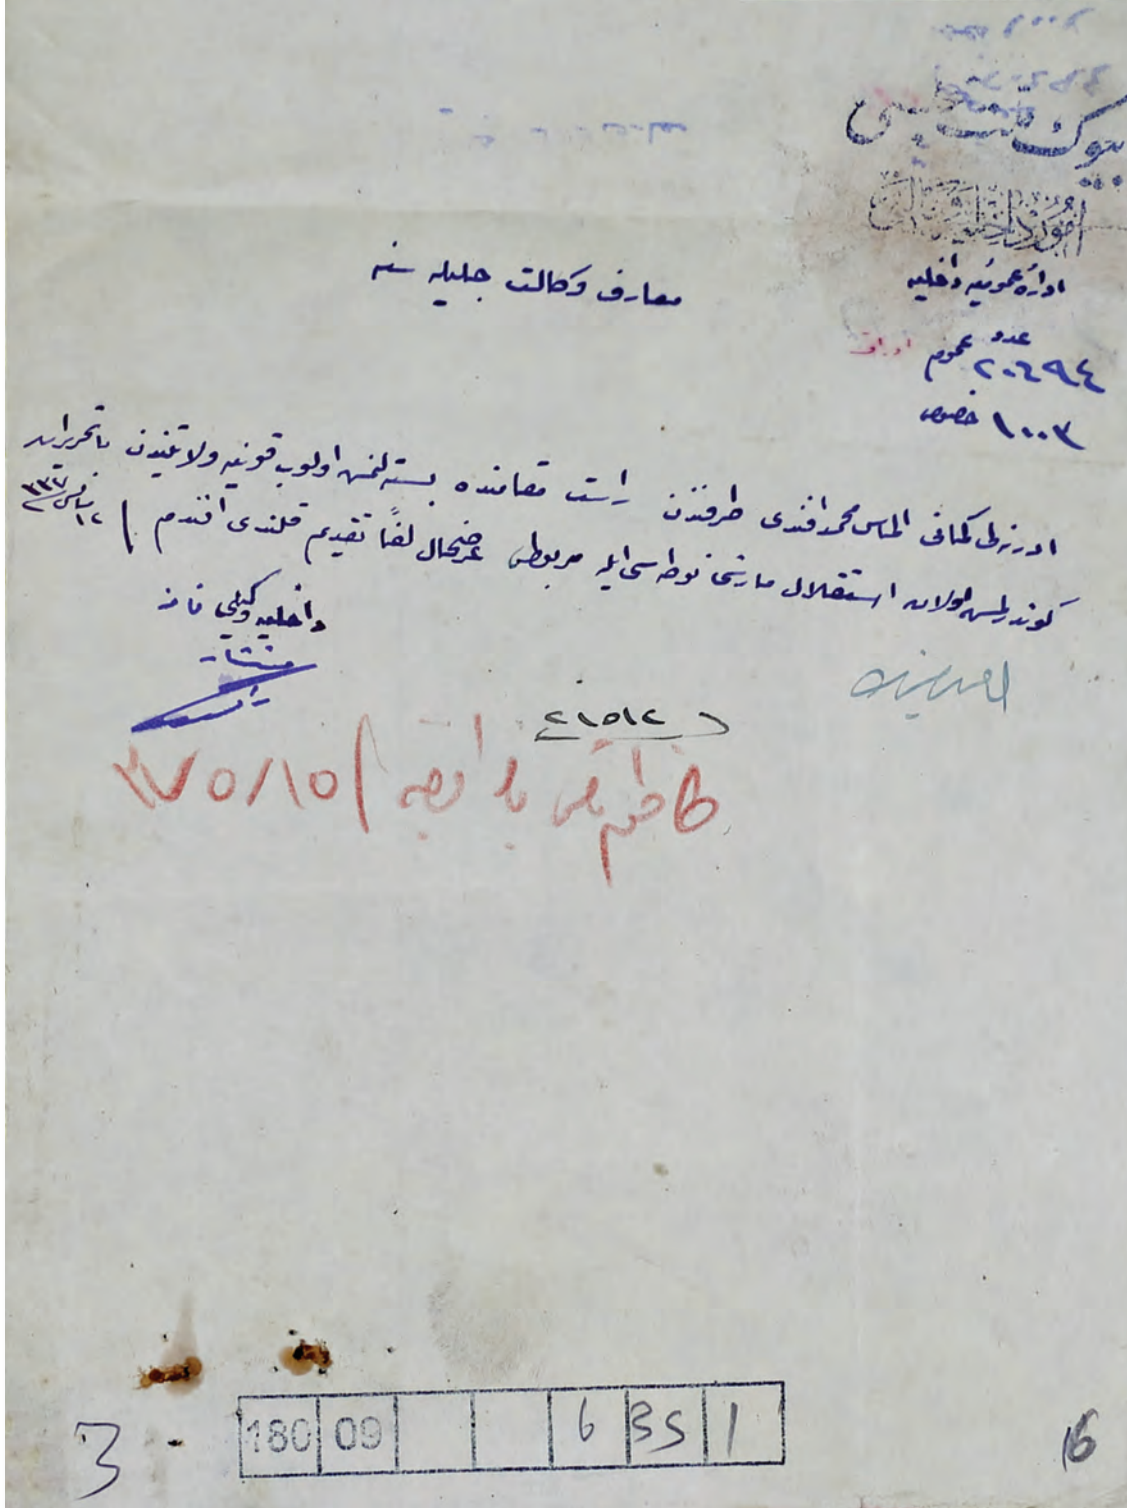 بیوك ملت مجلسی
امور داخلیه وکالتی
ادارۀ عمومیه داخلیه
عدد
عموم ٢٠٦٩٤ اوراق
خصوص ١٠٠٣
معارف وکالت جلیله سنه
ادرنه لی کمانی الماس محمد افندی طرفندن راست مقامنده بسته لنمش اولوب قونیه ولایتندن با تحریرات
کوندرلمش اولان استقلال مارشی نوطه سی ایله مربوطی عرضحال لفاً تقدیم قلندی افندم ١٢ مایس ٣٣٧
داخلیه وکیلی نامنه
مستشار
٢١٥١٢
١٥/٥/٣٧
180 09 6 35 1
3
16